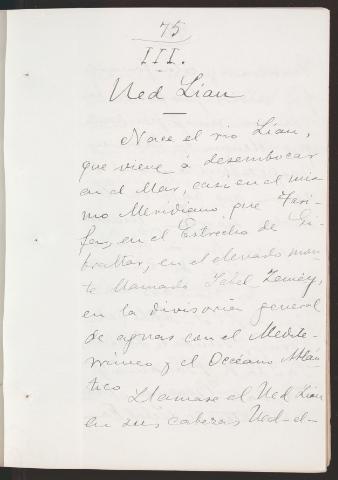 75
III.
Ued Lian
Nace el rio Lian,
que viene á desembocar
en el Mar, casi en el mis
mo Meridiano que Tari-
fa, en el Estrecho de Gi-
braltar, en el elevado mon-
te llamado Yebel Zemèy,
en la divisoria general
de aguas con el Medite-
rraneo y el Océano Atlán
tico Llamase el Ued Lian
en sus cabezas Ued-el-